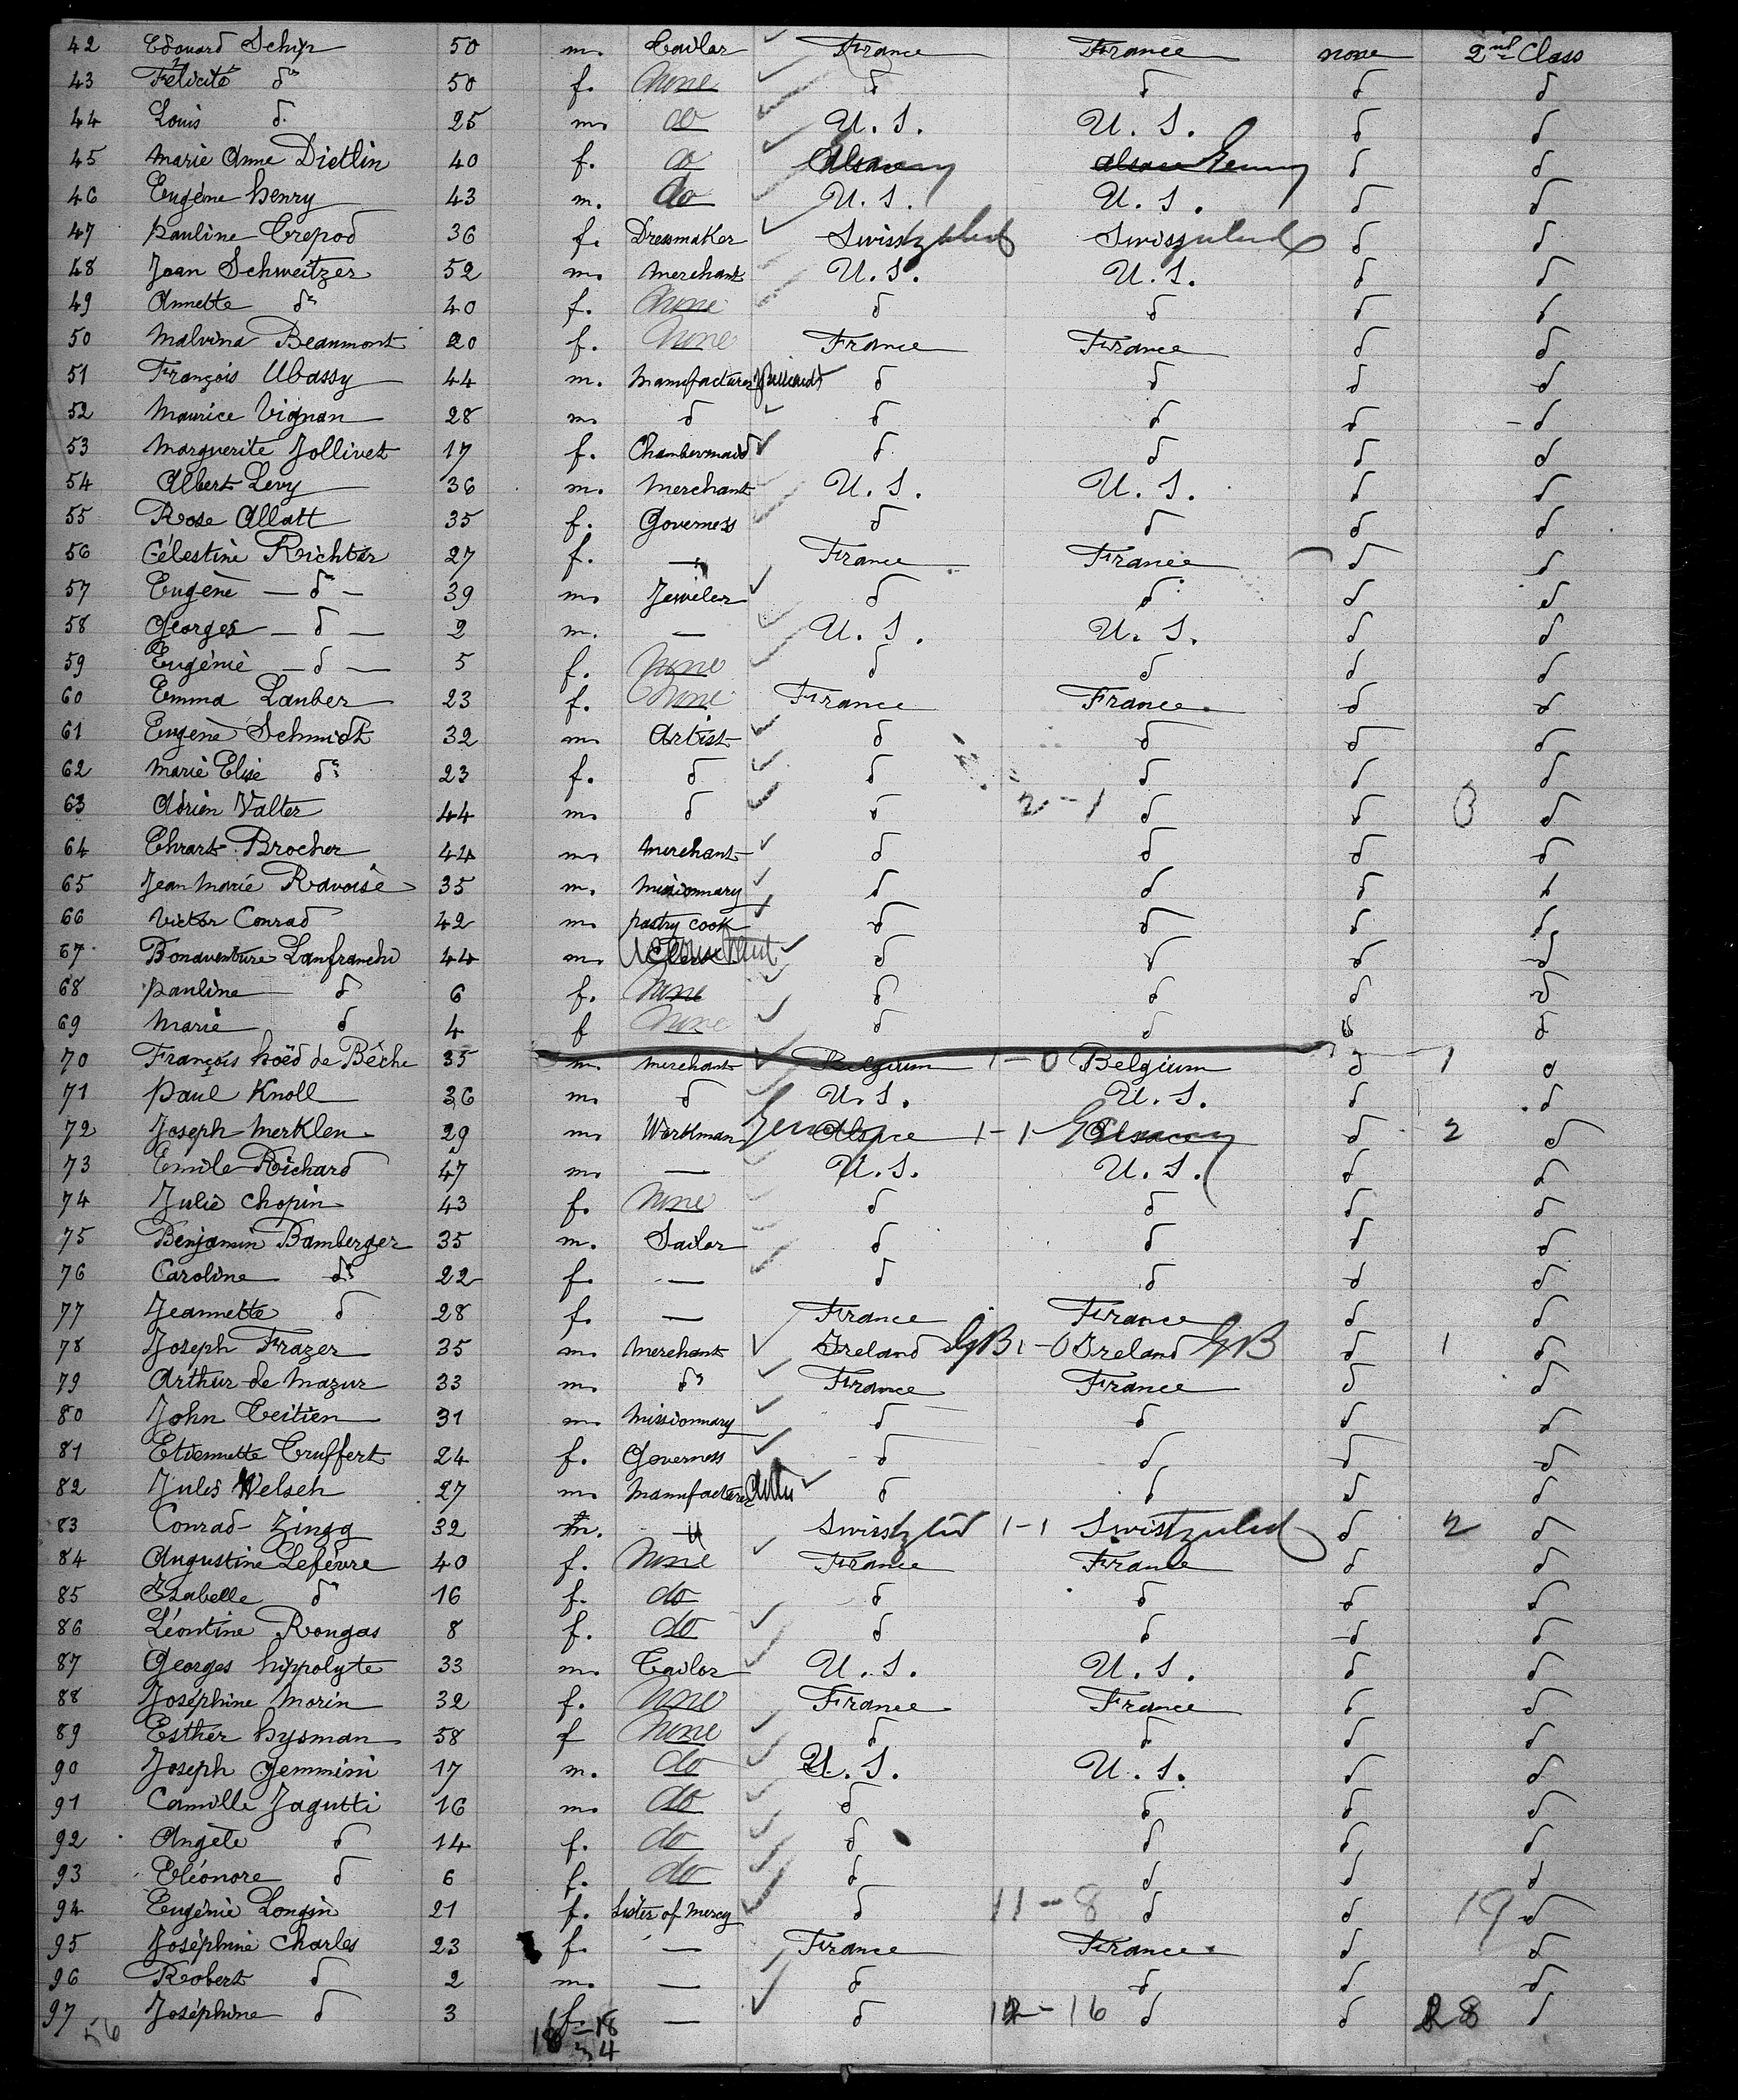 42 Edouard Schip 50 m. Tailor France France none 2nd Class
43 Félicité do 50 f. None d d d d
44 Louis d. 25 m. do U. S. U. S. d d
45 Marie Anne Dietlin 40 f. do Alsace Germy Alsace Germy d d
46 Eugène henry 43 m. do U. S. U. S. d d
47 Pauline Crepod 36 f. Dressmaker Switzerland Switzerland d d
48 Jean Schweitzer 52 m. Merchant U. S. U. S. d d
49 Annette do 40 f. None d d d d
50 Malvina Beaumont 20 f. None France France d d
51 François Ubassy 44 m. Manufacturer d d d d
52 Maurice Vignan 28 m. d d d d d
53 Marguerite Jollivet 17 f. Chambermaid d d d d
54 Albert Levy 36 m. Merchant U. S. U. S. d d
55 Rose Allatt 35 f. Governess d d d d
56 Célestine Richter 27 f. — France France d d
57 Eugène — do — 39 m. Jeweler d d d d
58 Georges — d — 2 m. — U. S. U. S. d d
59 Eugénie — d — 5 f. None d d d d
60 Emma Lauber 23 f. None France France d d
61 Eugène Schmidt 32 m. Artist d d d d
62 Marie Elise do 23 f. d d d d d
63 Adrien Valter 44 m. d d 2-1 d d 3 d
64 Ehrart Brocher 44 m. Merchant d d d d
65 Jean Marie Ravoise 35 m. Missionnary d d d d
66 Victor Conrad 42 m. pastry cook d d d d
67 Bonaventure Lanfranchi 44 m. Clerk d d d d
68 Pauline d 6 f. None d d d d
69 Marie d 4 f None d d d d
70 François hoëd de Bêche 35 m. Merchant Belgium 1-0 Belgium d 1 d
71 Paul Knoll 36 m. d U. S. U. S. d d
72 Joseph Merklen 29 m. Workman Germy Alsace 1-1 Germy Alsace d 2 d
73 Emile Richard 47 m. — U. S. U. S. d d
74 Julie Chopin 43 f. None d d d d
75 Benjamin Bamberger 35 m. Sailor d d d d
76 Caroline do 22 f. — d d d d
77 Jeannette d 28 f. — France France d d
78 Joseph Frazer 35 m. Merchant Ireland GB 1-0 Ireland GB d 1 d
79 Arthur de Mazur 33 m. do France France d d
80 John Teitien 31 m. Missionnary d d d d
81 Etiennette Truffert 24 f. Governess d d d d
82 Jules Welsch 27 m. Manufacturer d d d d
83 Conrad Zingg 32 m. Switzld 1-1 Switzerland d 2 d
84 Augustine Lefèvre 40 f. None France France d d
85 Isabelle do 16 f. do d d d d
86 Léontine Rongas 8 f. do d d d d
87 Georges hippolyte 33 m. Tailor U. S. U. S. d d
88 Joséphine Morin 32 f. None France France d d
89 Esther hysman 58 f None d d d d
90 Joseph Gemmini 17 m. do U. S. U. S. d d
91 Camille Jagutti 16 m. do d d d d
92 Angèle d 14 f. do d d d d
93 Eléonore d 6 f. do d d d d
94 Eugénie Longin 21 f. Sister of Mercy d 11-8 d d 19 d
95 Joséphine Charles 23 f. — France France d d
96 Robert d 2 m. — d d d d
97 Joséphine d 3 f. — d 12-16 d d 28 d
56 18-18
34